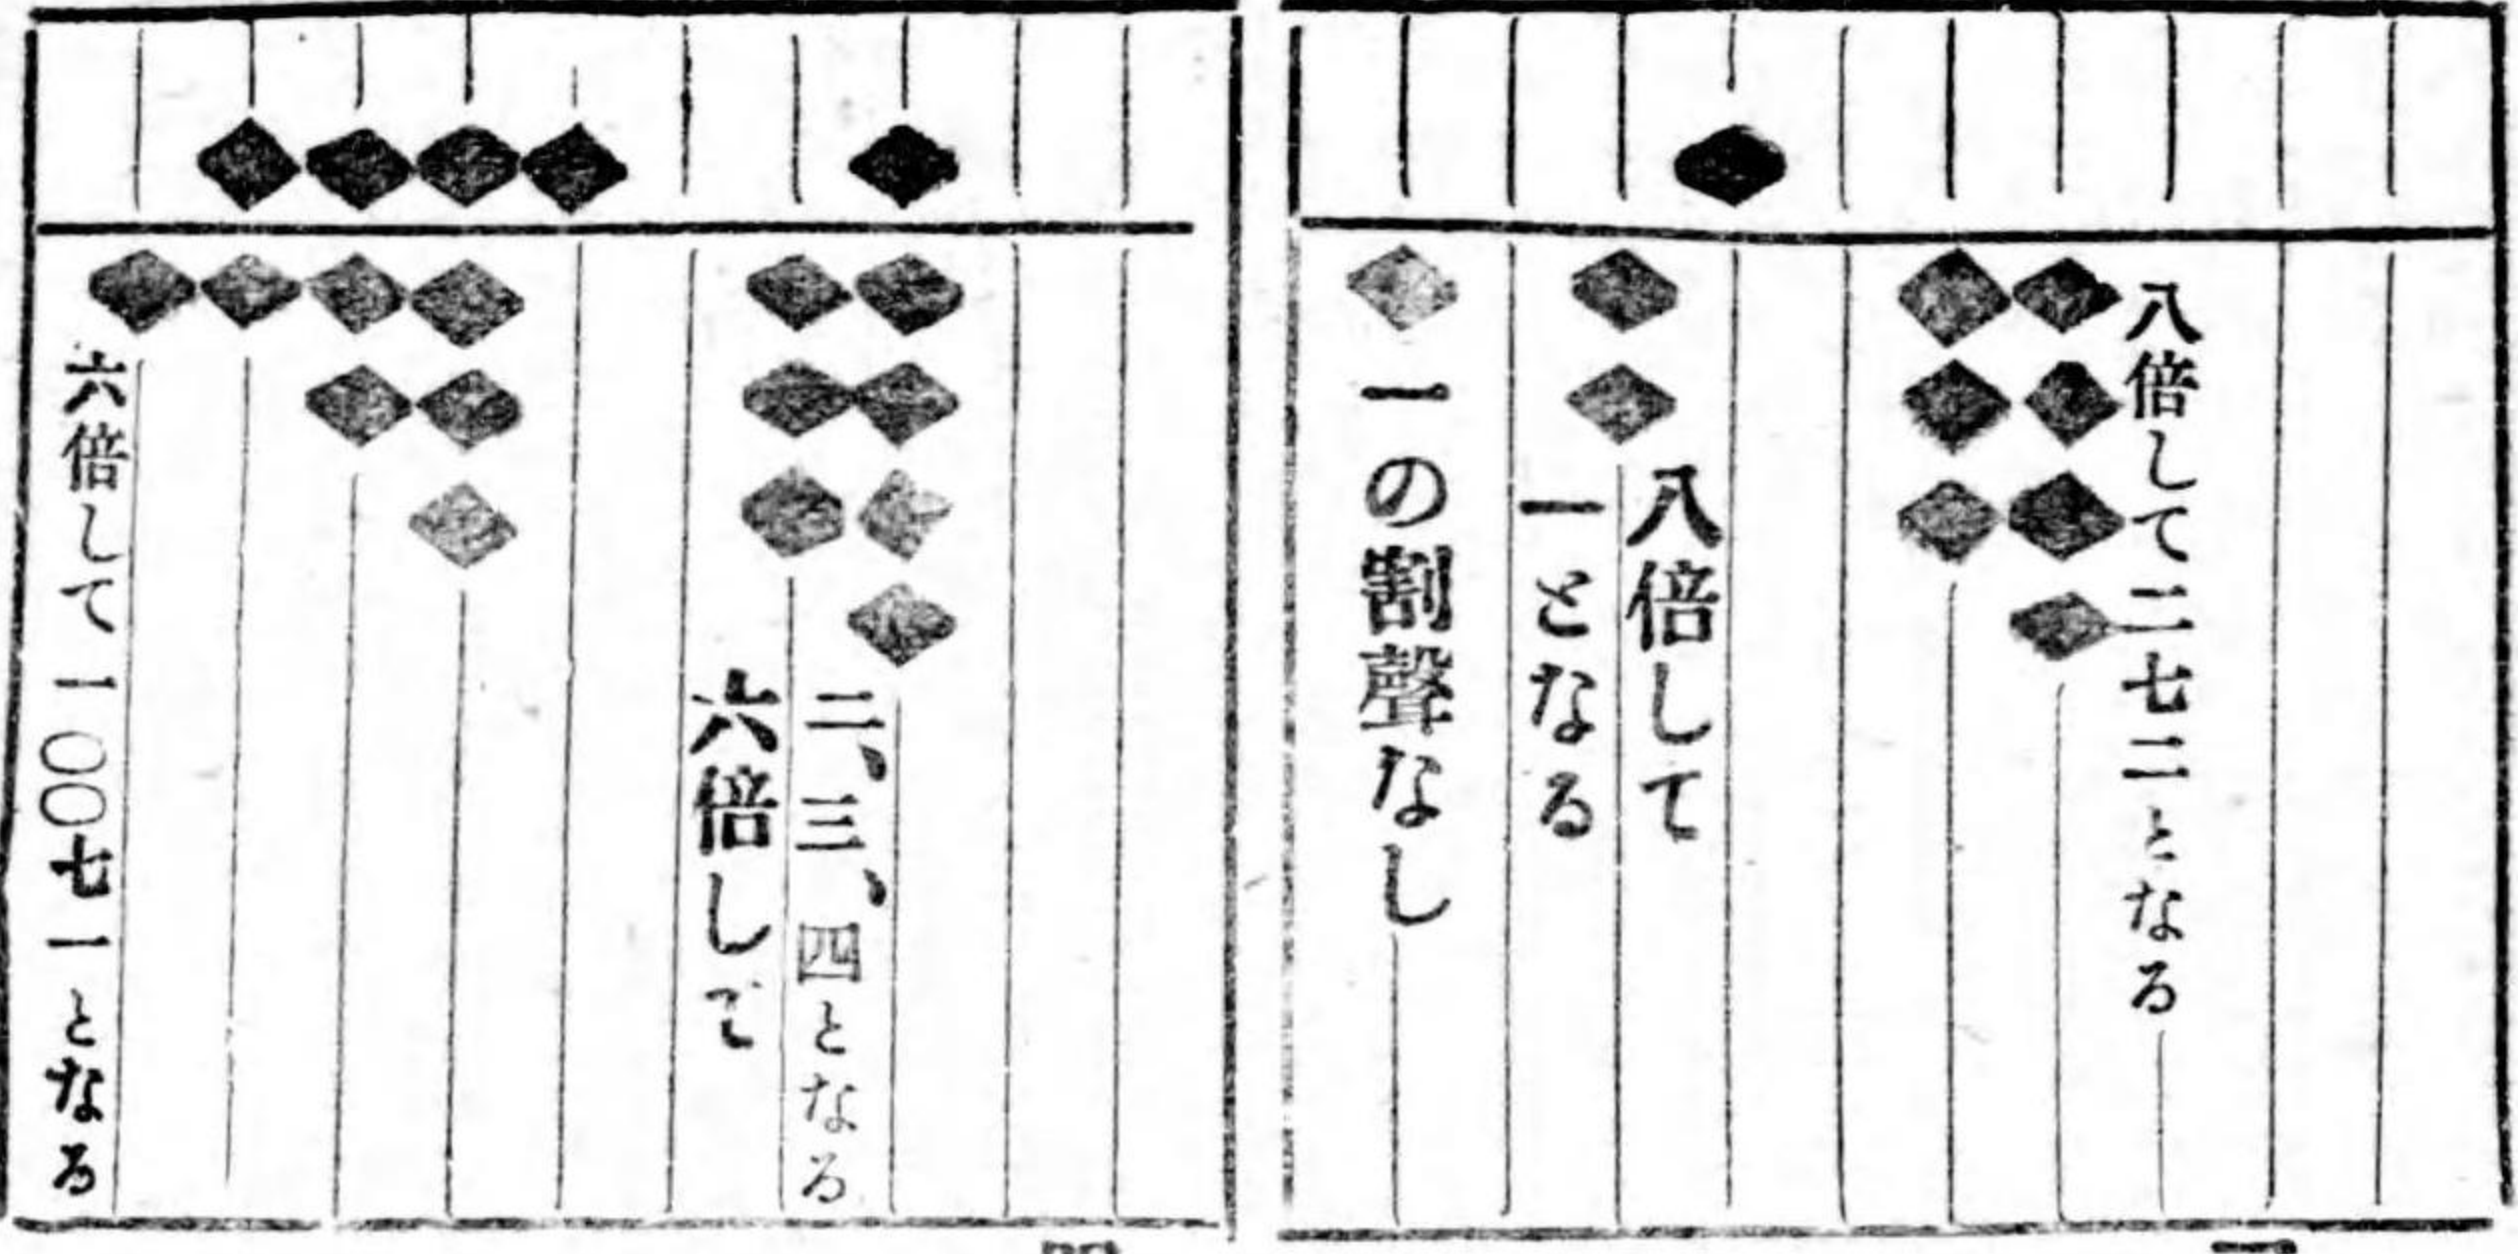 八倍して二七二となる
八倍して
一となる
一の割聲なし
二、三、四となる
六倍して
六倍して一〇〇七一となる